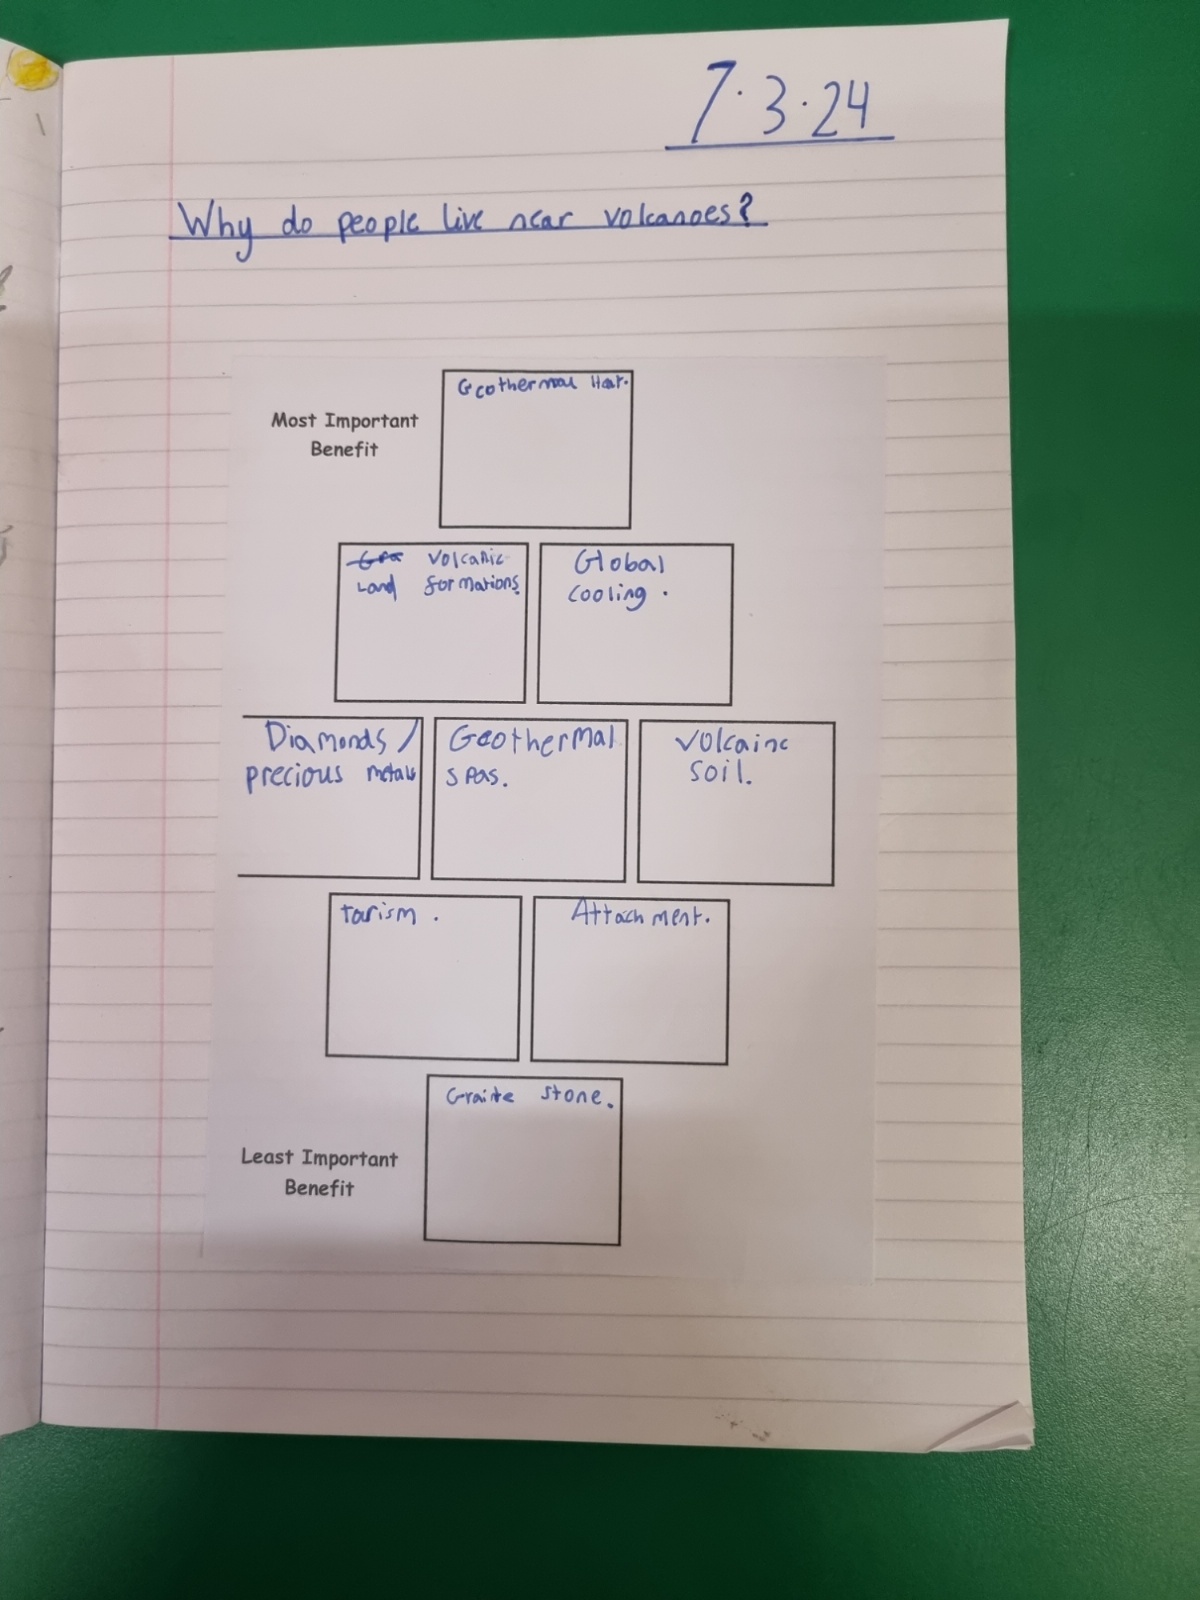 7.3.24
Why do people live near volcanoes?
Geothermal Heat.
Most Important
Benefit
Volcanic
Land formations.
Global
cooling.
Diamonds /
precious metals
Geothermal
spas.
volcainc
soil.
tarism.
Attachment.
Graite stone.
Least Important
Benefit